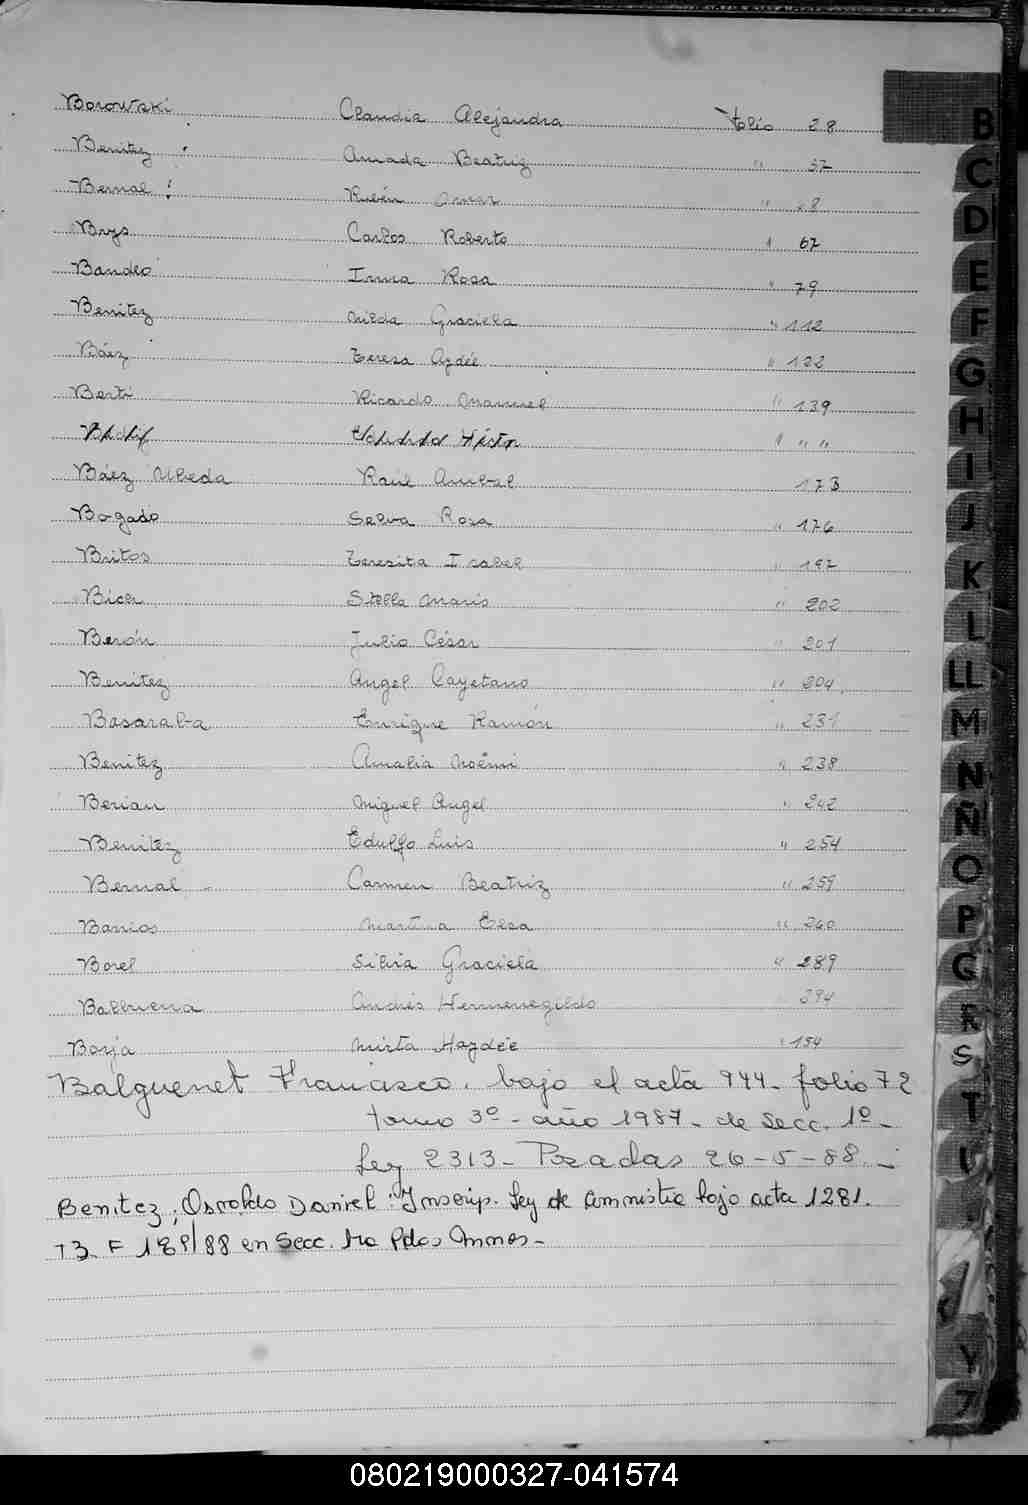 Borowski Claudia Alejandra folio 28
Benitez Amada Beatriz " 37
Bernal Rubén Omar " 8
Brys Carlos Roberto " 67
Bandeo Irma Rosa " 79
Benitez Nilda Graciela " 112
Báez Teresa Aydée " 122
Berti Ricardo Manuel " 139
" " "
Báez Ubeda Raúl Anibal 173
Bogado Selva Rosa " 176
Britos Teresita Isabel " 197
Stella Maris " 202
Berón Julio César " 201
Benitez Angel Cayetano " 204
Basaraba Enrique Ramón " 231
Benitez Amalia Noemi " 238
Berian Miguel Angel " 242
Benitez Edulfo Luis " 254
Bernal Carmen Beatriz " 259
Barrios Martina Elsa " 260
Borel Silvia Graciela " 289
Balbuena Andrés Hermenegildo 394
Borja Mirta Haydée " 154
Balguenet Francisco. bajo el acta 944- folio 72
tomo 3º- año 1987- de Secc. 1º-
Ley 2313- Posadas 26-5-88.-
Benitez; Osvaldo Daniel: Inscrip. Ley de amnistia bajo acta 1281.
T3- F 189/88 en Secc. 1ra Pdas Mnes-
B
C
D
E
F
G
H
I
J
K
L
LL
M
N
Ñ
O
P
Q
R
S
T
U
Y
Z
080219000327-041574